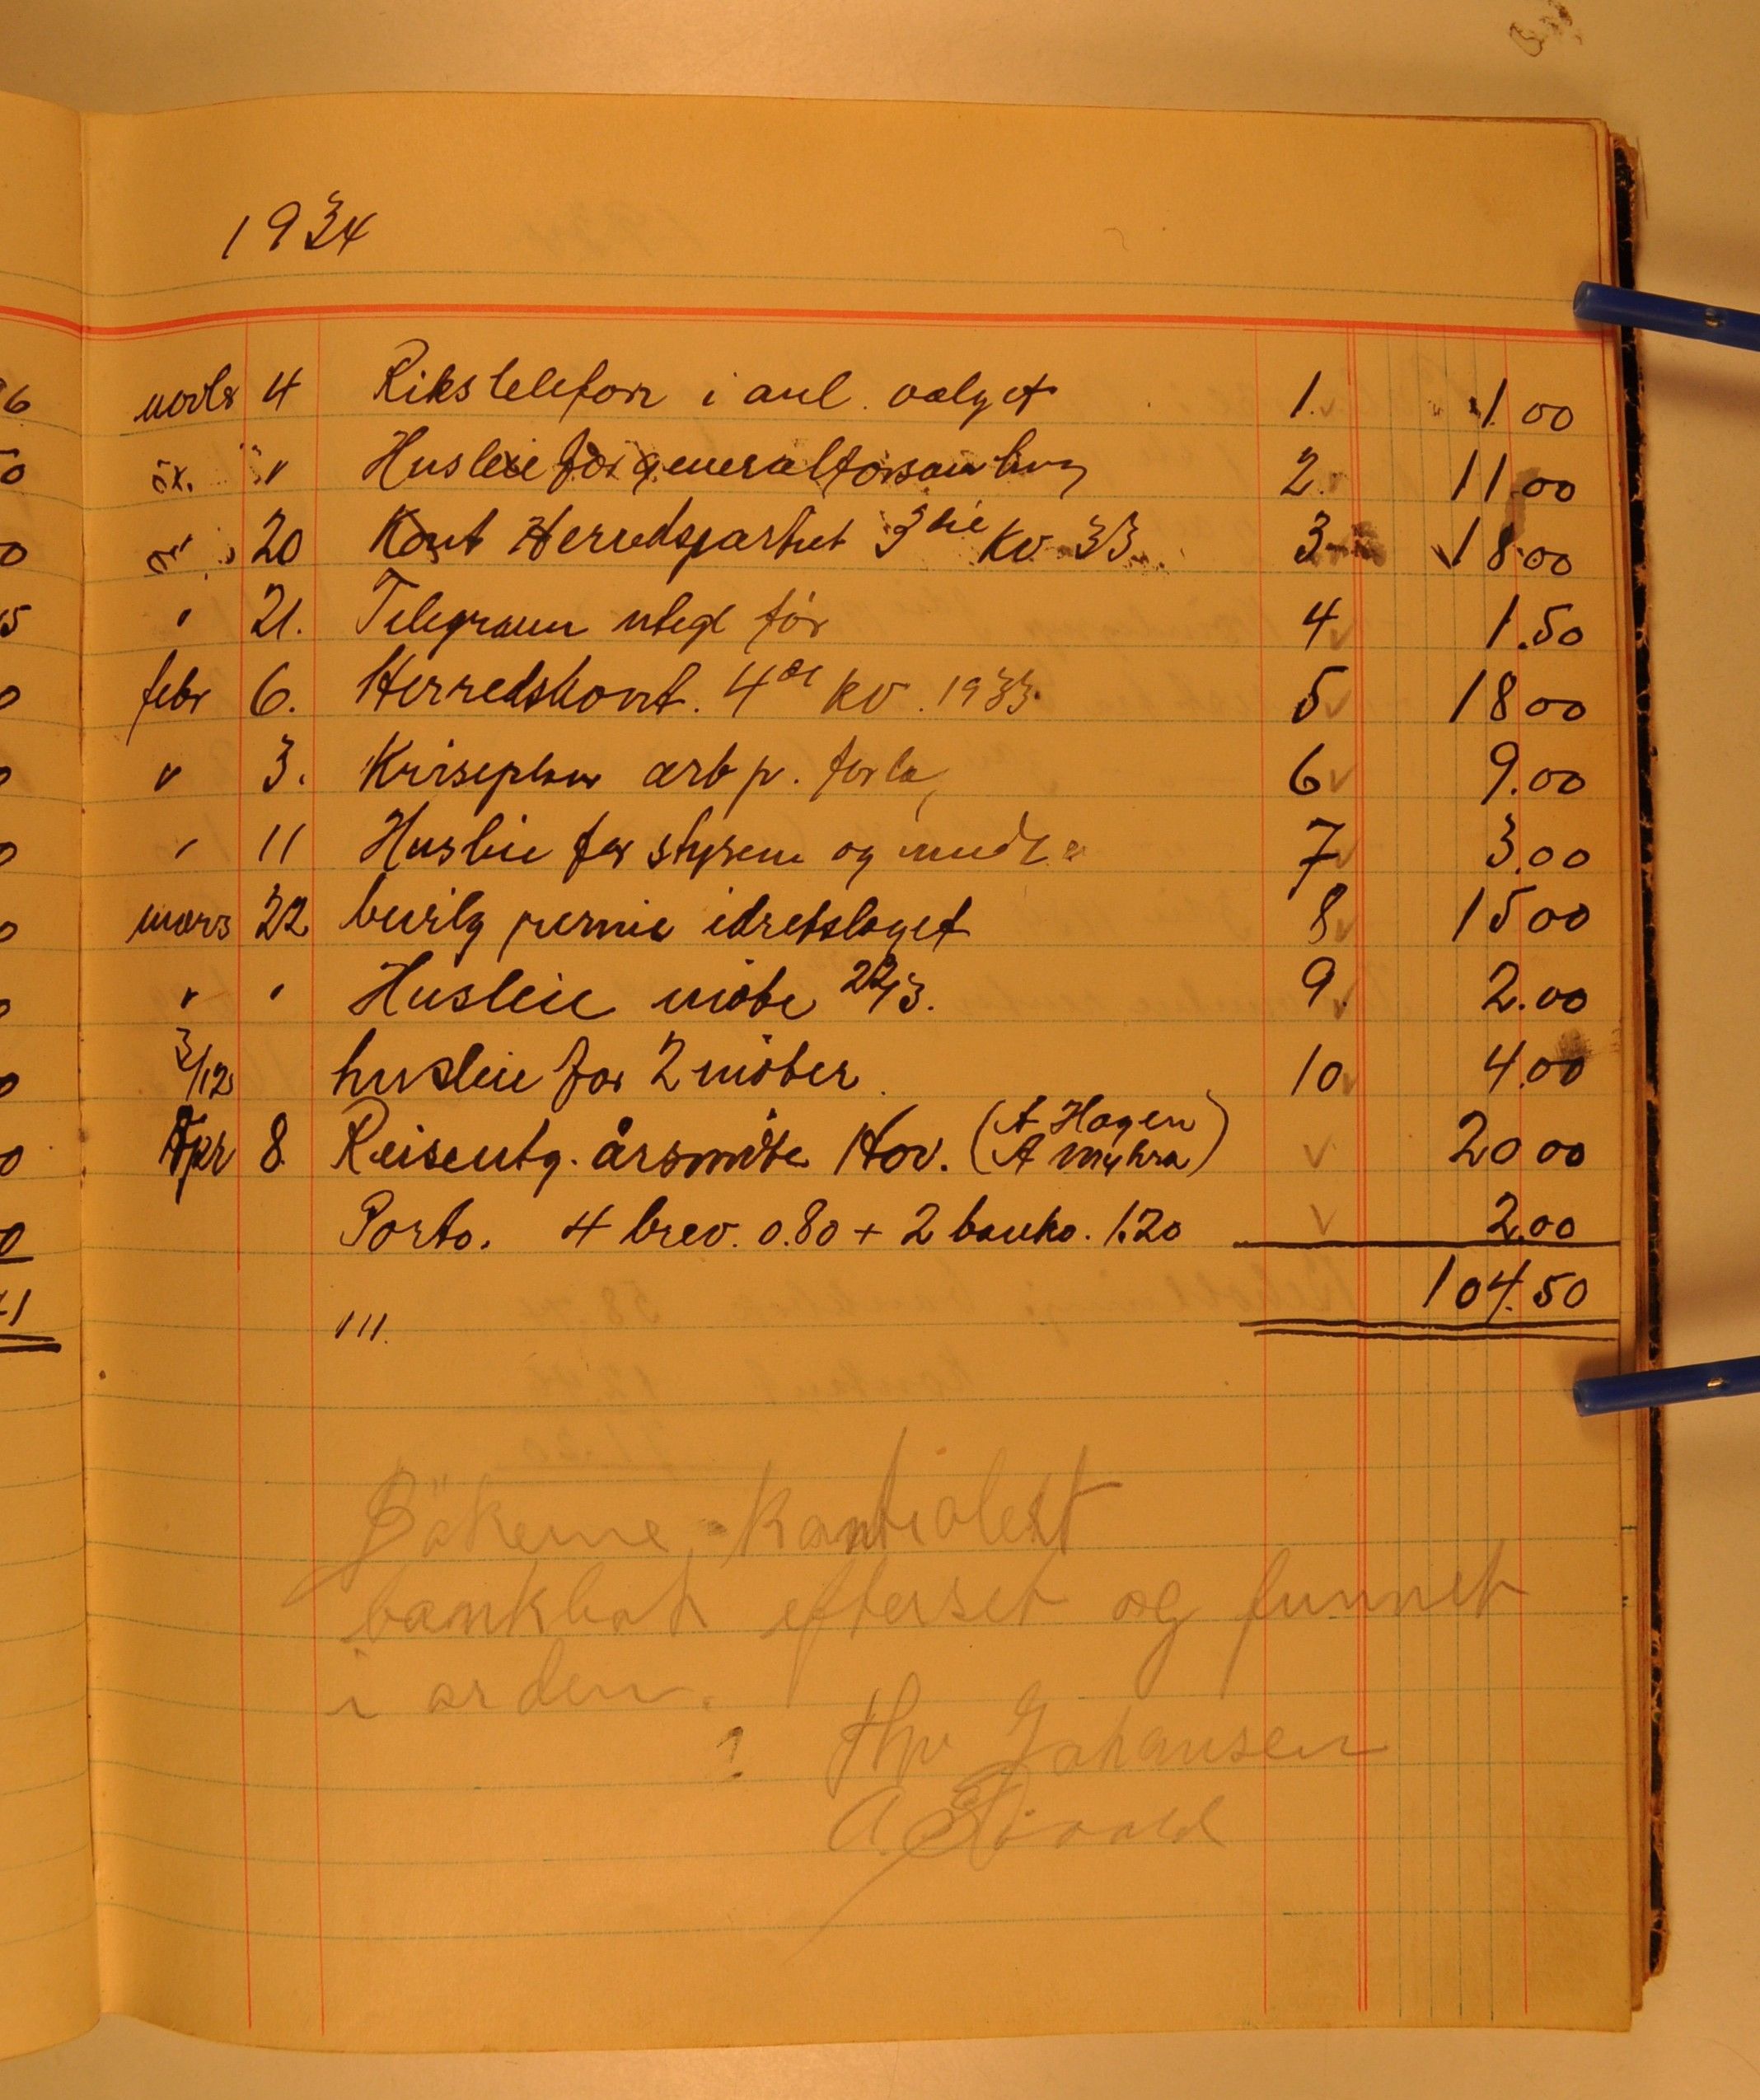 1934
4 Rikstelefon i anl. valget 1. 1.00
" Husleie for generalforsamling 2. 11.00
20 Kont Herredspartiet 3die kv. 33. 3 18.00
" 21. Telegram utlegt for 4 1.50
febr 6. Herredskont. 4de kv. 1933. 5 18 00
" 3. Kriseplan arb p. forla 6 9.00
" 11 Husleie for styrem og 7 3.00
mars 22 bevilg premie idretslaget 8 15 00
" " Husleie möte 22/3. 9 2.00
3/12 husleie for 2 möter 10 4.00
Apr 8. Reiseutg. årsmöte Hov. (A Hagen
A Myhra) 20 00
Porto. 4 brev. 0.80 + 2 banko. 1.20 2.00
104.50
Bökerne kontrolert
bankbok efterset og funnet
i orden.
Johansen
A.
6
0
0
5
0
0
0
0
0
0
0
0
1